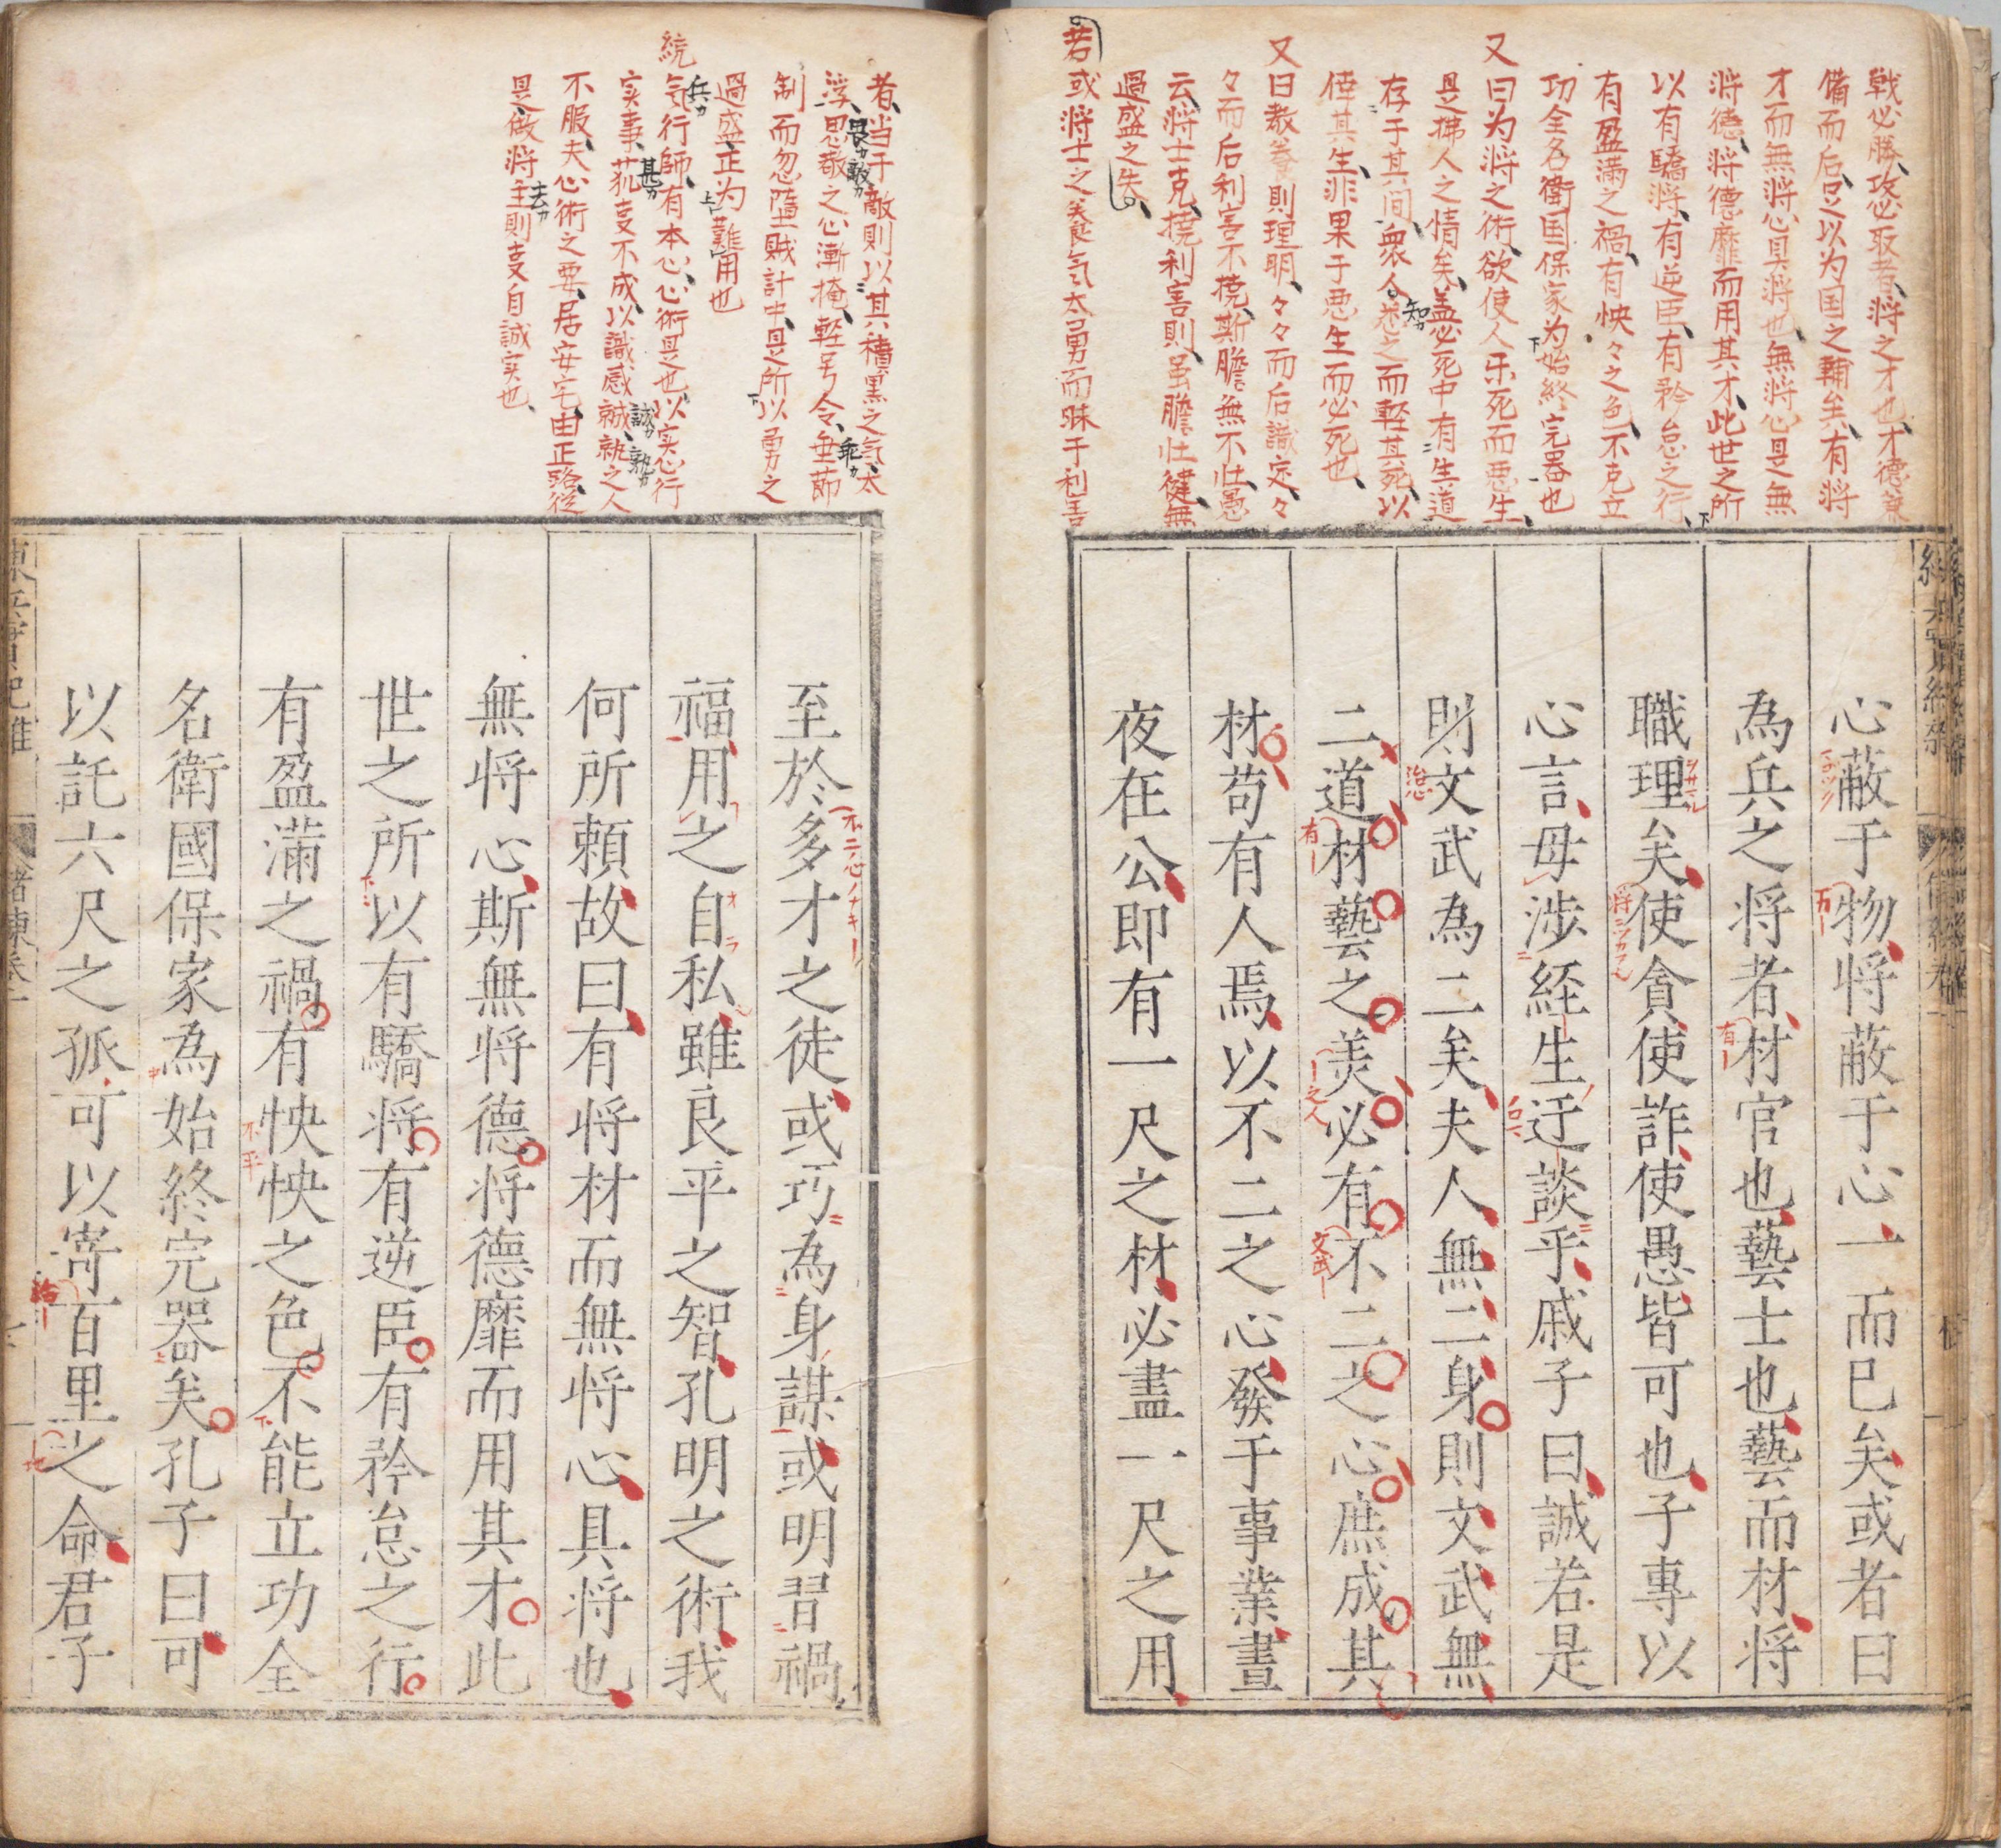 戰必勝、攻必取者、將之才也、才德兼
備而后、足以为国之輔矣、有將
才而無將心、具將也、無將心、是無
將德、將德靡而用其才、此世之所
以有驕將、有逆臣、有矜怠之行、
有盈滿之禍、有怏々之色、不克立
功全名衛国保家为始終完器也
又曰为將之術、欲使人乐死而悪生、
是拂人之情矣、盖必死中有生道
存于其間、衆人悉之而軽其死、以
倖其生、非果于悪生而必死也、
又曰教養則理明、々々而后識定、々
々而后利害不撓、斯膽無不壮、愚
云、將士克撓利害則、虽膽壮健、無
過盛之失、
若或將士之養気太勇而昧于利害
心蔽于物、将蔽于心、一而已矣、或者曰
為兵之将者、材官也、藝士也、藝而材、将
職理矣、使貪使詐、使愚、皆可也、子專以
心言、毋涉経生迂談乎、戚子曰、誠若是
則文武為二矣、夫人無二身、則文武無
二道、材藝之美必有不二之心、庶成其
材、苟有人焉、以不二之心、發于事業、晝
夜在公、即有一尺之材、必盡一尺之用、
者、当于敵則以其積累之気、太
浮、思敬之心漸掩、軽号令、垂節
制而忽隳賊計中、是所以勇之
過盛、正为難用也
統
気行師、有本心、心術是也、以实心行
实事、孤支不成、以識感誠、執之人
不服、夫心術之要、居安宅、由正路、從
是、做將主則支自誠实也、
至於多才之徒、或巧為身謀、或明習禍
福、用之自私、雖良平之智、孔明之術、我
何所頼、故曰、有将材而無将心、具将也、
無将心、斯無将德、将德靡而用其才、此
世之所以有驕将、有逆臣、有矜怠之行、
有盈滿之禍、有怏怏之色、不能立功全
名衛國保家為始終完器矣、孔子曰、可
以託六尺之孤、可以寄百里之命、君子